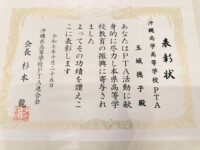 表彰状
沖縄尚学高等学校PTA
玉城徳子殿
あなたはPTA活動に献
身的に尽力し本県高等学
校教育の振興に寄与され
ました
よってその功績を讃えこ
こに表彰します
令和七年十月二十五日
沖縄県高等学校PTA連合会
会長 杉本 龍